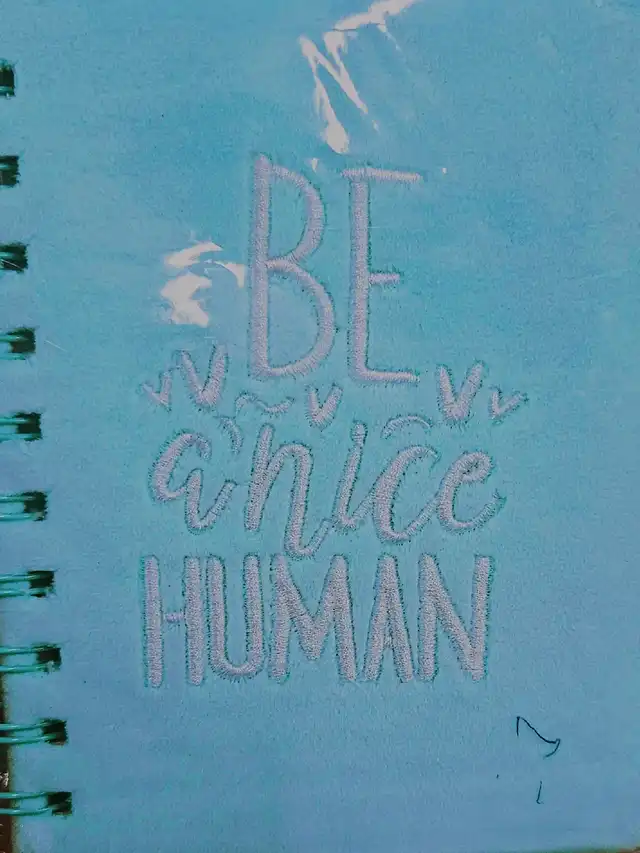 BE
a nice
HUMAN